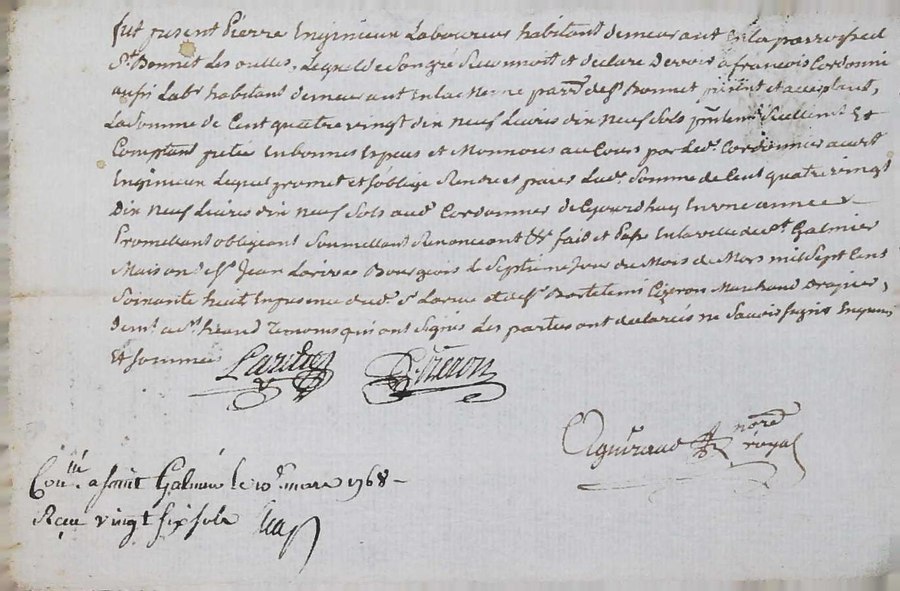 fut present Pierre Inginieux Laboureur habitant demeurant en la parroisse de
St. Bonnet Les oulles, Lequel de son gré Reconnoit et declare Devoir a françois Cordonni
aussi Labr habitant demeurant en la parre de St Bonnet present et acceptant,
La somme de Cent quattre vingt dix Neuf Livres dix Neuf Sols Et
Comptant en bonnes Especes et Monnoies au Cours par Led. Cordonnier audit
Inginieux Lequel promet et soblige Rendre et paier Lad. Somme de Cent quatre vingt
Dix Neuf Livres dix neuf Sols aud. Cordonnier de Cejourdhuy en une année
Promettant obligeant Soumettant Renonceant &c fait et Passé En la ville de St Galmier
Maison de Sr Jean Bourgeois le Septieme Jour du Mois de Mars mil Sept Cent
Soixante huit En presence dud. Sr et de Sr Bartelemi Marchand
temoins qui ont Signés Les parties ont declarées ne Savoir Signer Enquis
Et sommées
nore
royal
Conlé. a saint Galmier le 10e. mars 1768
Reçu vingt six sols